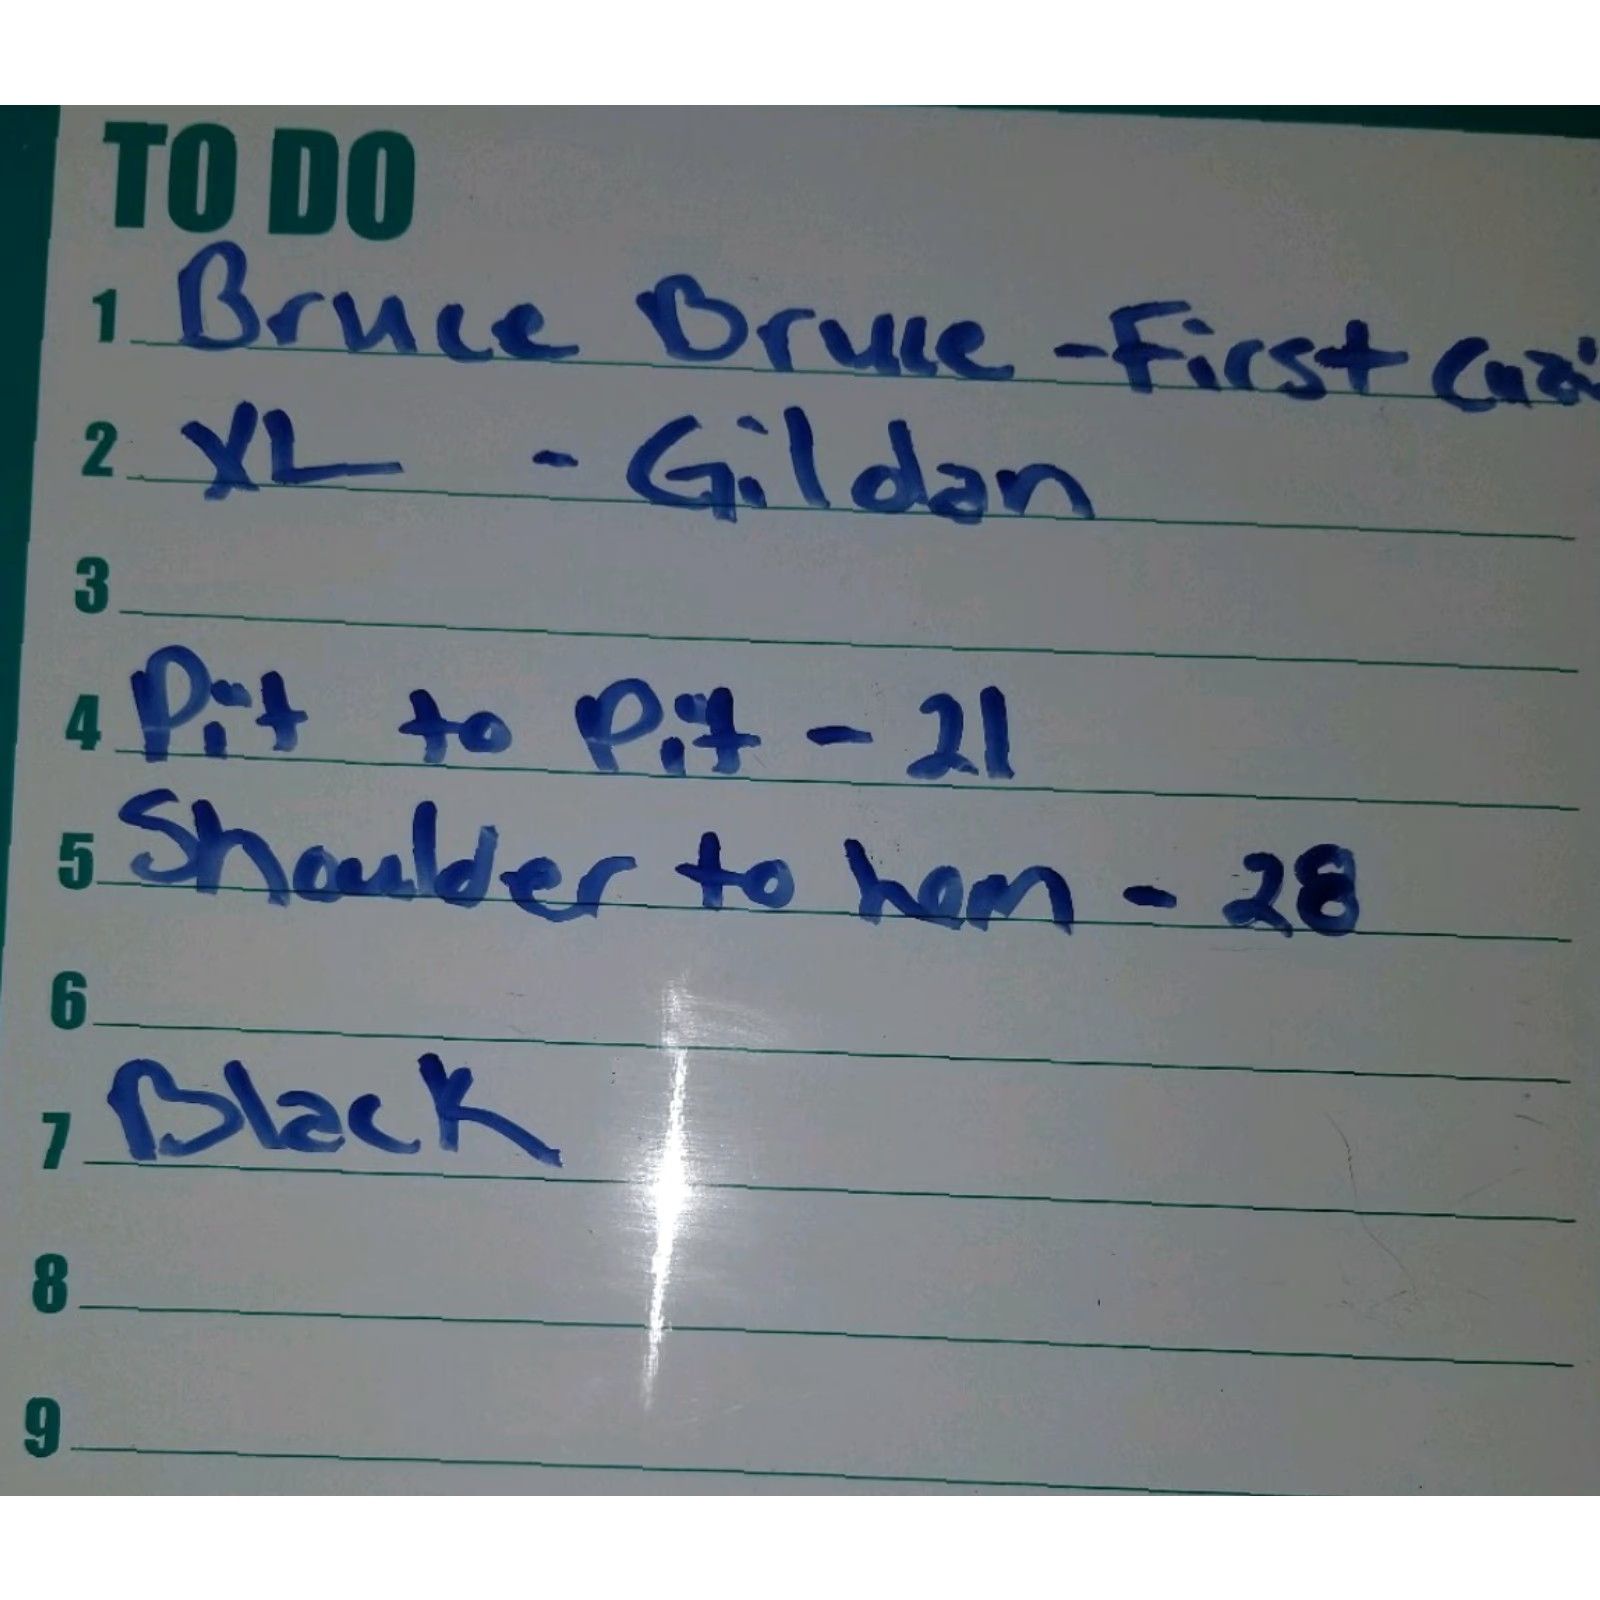 TO DO
1 Bruce Bruce - First
2 XL - Gildan
3
4 Pit to Pit - 21
5 Shoulder to hem - 28
6
7 Black
8
9